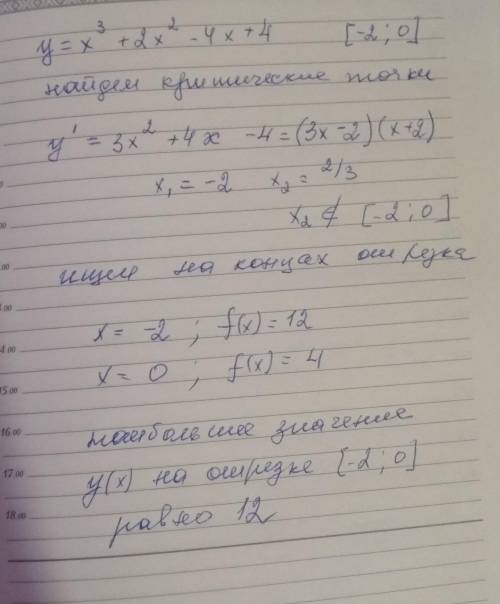 y = x³ + 2x² - 4x + 4 [-2; 0]
найдем критические точки
y' = 3x² + 4x - 4 = (3x - 2)(x + 2)
x₁ = -2 x₂ = 2/3
x₂ ∉ [-2; 0]
ищем на концах отрезка
x = -2 ; f(x) = 12
14.00
x = 0 ; f(x) = 4
15.00
наибольшее значение
16.00
y(x) на отрезке [-2; 0]
17.00
равно 12
18.00